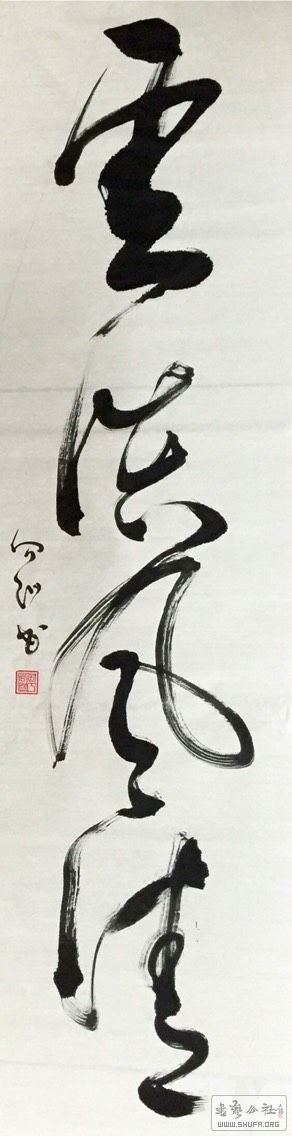 雲淡風清
書藝公社
WWW.SHUFA.ORG